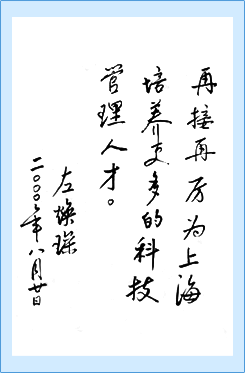 再接再厉为上海
培养更多的科技
管理人才。
左焕琛
二〇〇〇年八月廿日